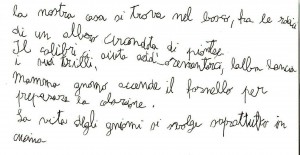 la nostra casa si trova nel bosco, fra le radici
di un albero circondata di piante
Il colibrì ci aiuta add l'alba lancia
i suoi trilli,
mamma gnomo accende il fornello per
preparare la colazione.
La vita degli gnomi si svolge soprattutto in
cucina